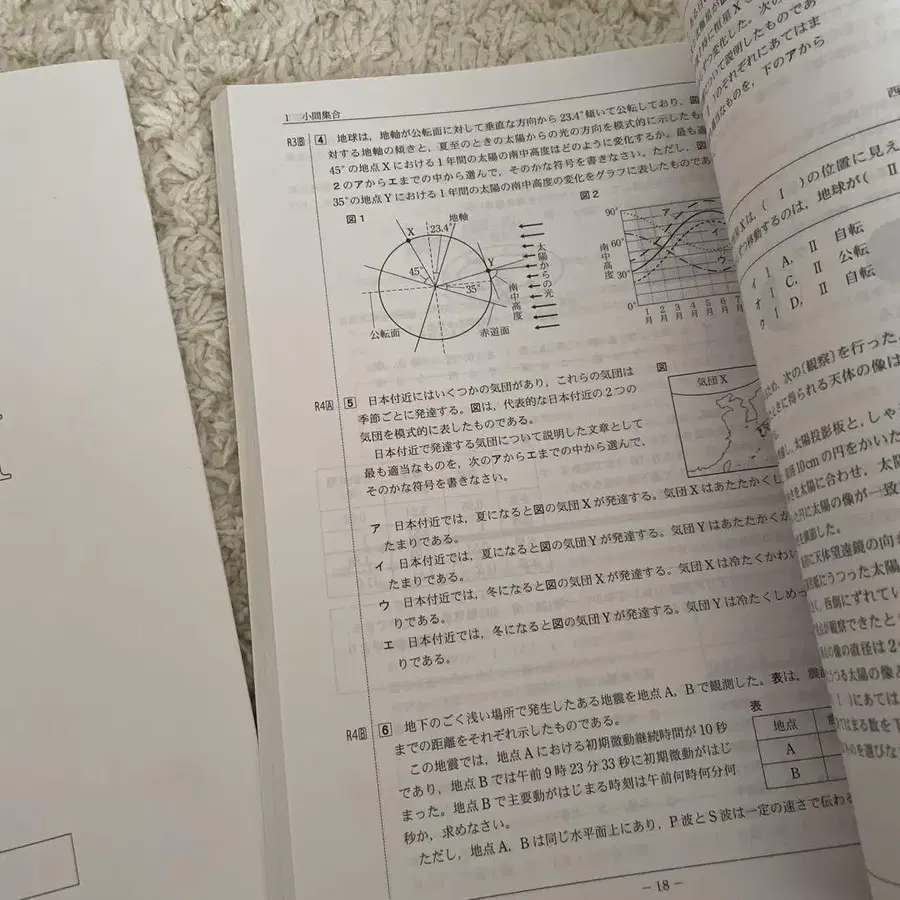 1 小問集合
R3B 4 地球は，地軸が公転面に対して垂直な方向から23.4°傾いて公転しており，図
対する地軸の傾きと，夏至のときの太陽からの光の方向を模式的に示したも
45°の地点Xにおける1年間の太陽の南中高度はどのように変化するか。最も適
2のアからエまでの中から選んで，そのかな符号を書きなさい。ただし，図
35°の地点Yにおける1年間の太陽の南中高度の変化をグラフに表したものであ
図1
地軸
X
23.4°
45°
Y
35°
太陽からの光
南中高度
公転面
赤道面
図2
90°
60°
30°
0°
南中高度
ア
イ
ウ
1月 2月 3月 4月 5月 6月 7
R4A 5 日本付近にはいくつかの気団があり，これらの気団は
季節ごとに発達する。図は，代表的な日本付近の2つの
気団を模式的に表したものである。
日本付近で発達する気団について説明した文章として
最も適当なものを，次のアからエまでの中から選んで，
そのかな符号を書きなさい。
図
気団X
ア 日本付近では，夏になると図の気団Xが発達する。気団Xはあたたかくし
たまりである。
イ 日本付近では，夏になると図の気団Yが発達する。気団Yはあたたかくか
たまりである。
ウ 日本付近では，冬になると図の気団Xが発達する。気団Xは冷たくかわい
りである。
エ 日本付近では，冬になると図の気団Yが発達する。気団Yは冷たくしめっ
りである。
R4B 6 地下のごく浅い場所で発生したある地震を地点A，Bで観測した。表は，震
までの距離をそれぞれ示したものである。
この地震では，地点Aにおける初期微動継続時間が10秒
であり，地点Bでは午前9時23分33秒に初期微動がはじ
まった。地点Bで主要動がはじまる時刻は午前何時何分何
秒か，求めなさい。
ただし，地点A，Bは同じ水平面上にあり，P波とS波は一定の速さで伝わ
表
地点
A
B
－18－
時に恒星Xで
ずつ変化した。次の
について説明したものであ
)のそれぞれにあてはま
当なものを，下のアから
西
Xは，( Ⅰ )の位置に見え
ずつ移動するのは，地球が( Ⅱ
イ Ⅰ A， Ⅱ 自転
オ Ⅰ C， Ⅱ 公転
ク Ⅰ D， Ⅱ 自転
ため，次の〔観察〕を行った
ときに得られる天体の像は
太陽投影板と，しゃ
直径10cmの円をかいた
を太陽に合わせ，太陽
た円に太陽の像が一致
を調節した。
に天体望遠鏡の向
紙にうつった太陽
く，西側にずれてい
が観察できたと
の像の直径は2
うつる太陽の像と
)にあては
てはまる数を下
のを選びな